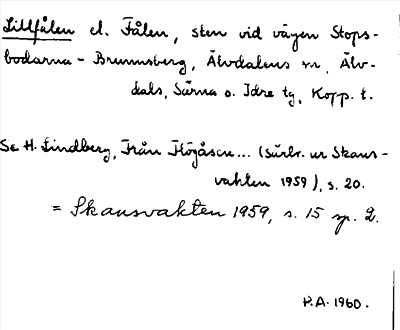 Lillfålen el. Fålen, sten vid vägen Stops-
bodarna - Brunnsberg, Älvdalens sn, Älv-
dals, Särna o. Idre tg, Kopp. l.
Se H. Lindberg, Från Högåsen... (särtr. ur Skans-
vakten 1959), s. 20.
= Skansvakten 1959, s. 15 sp. 2.
P.A. 1960.